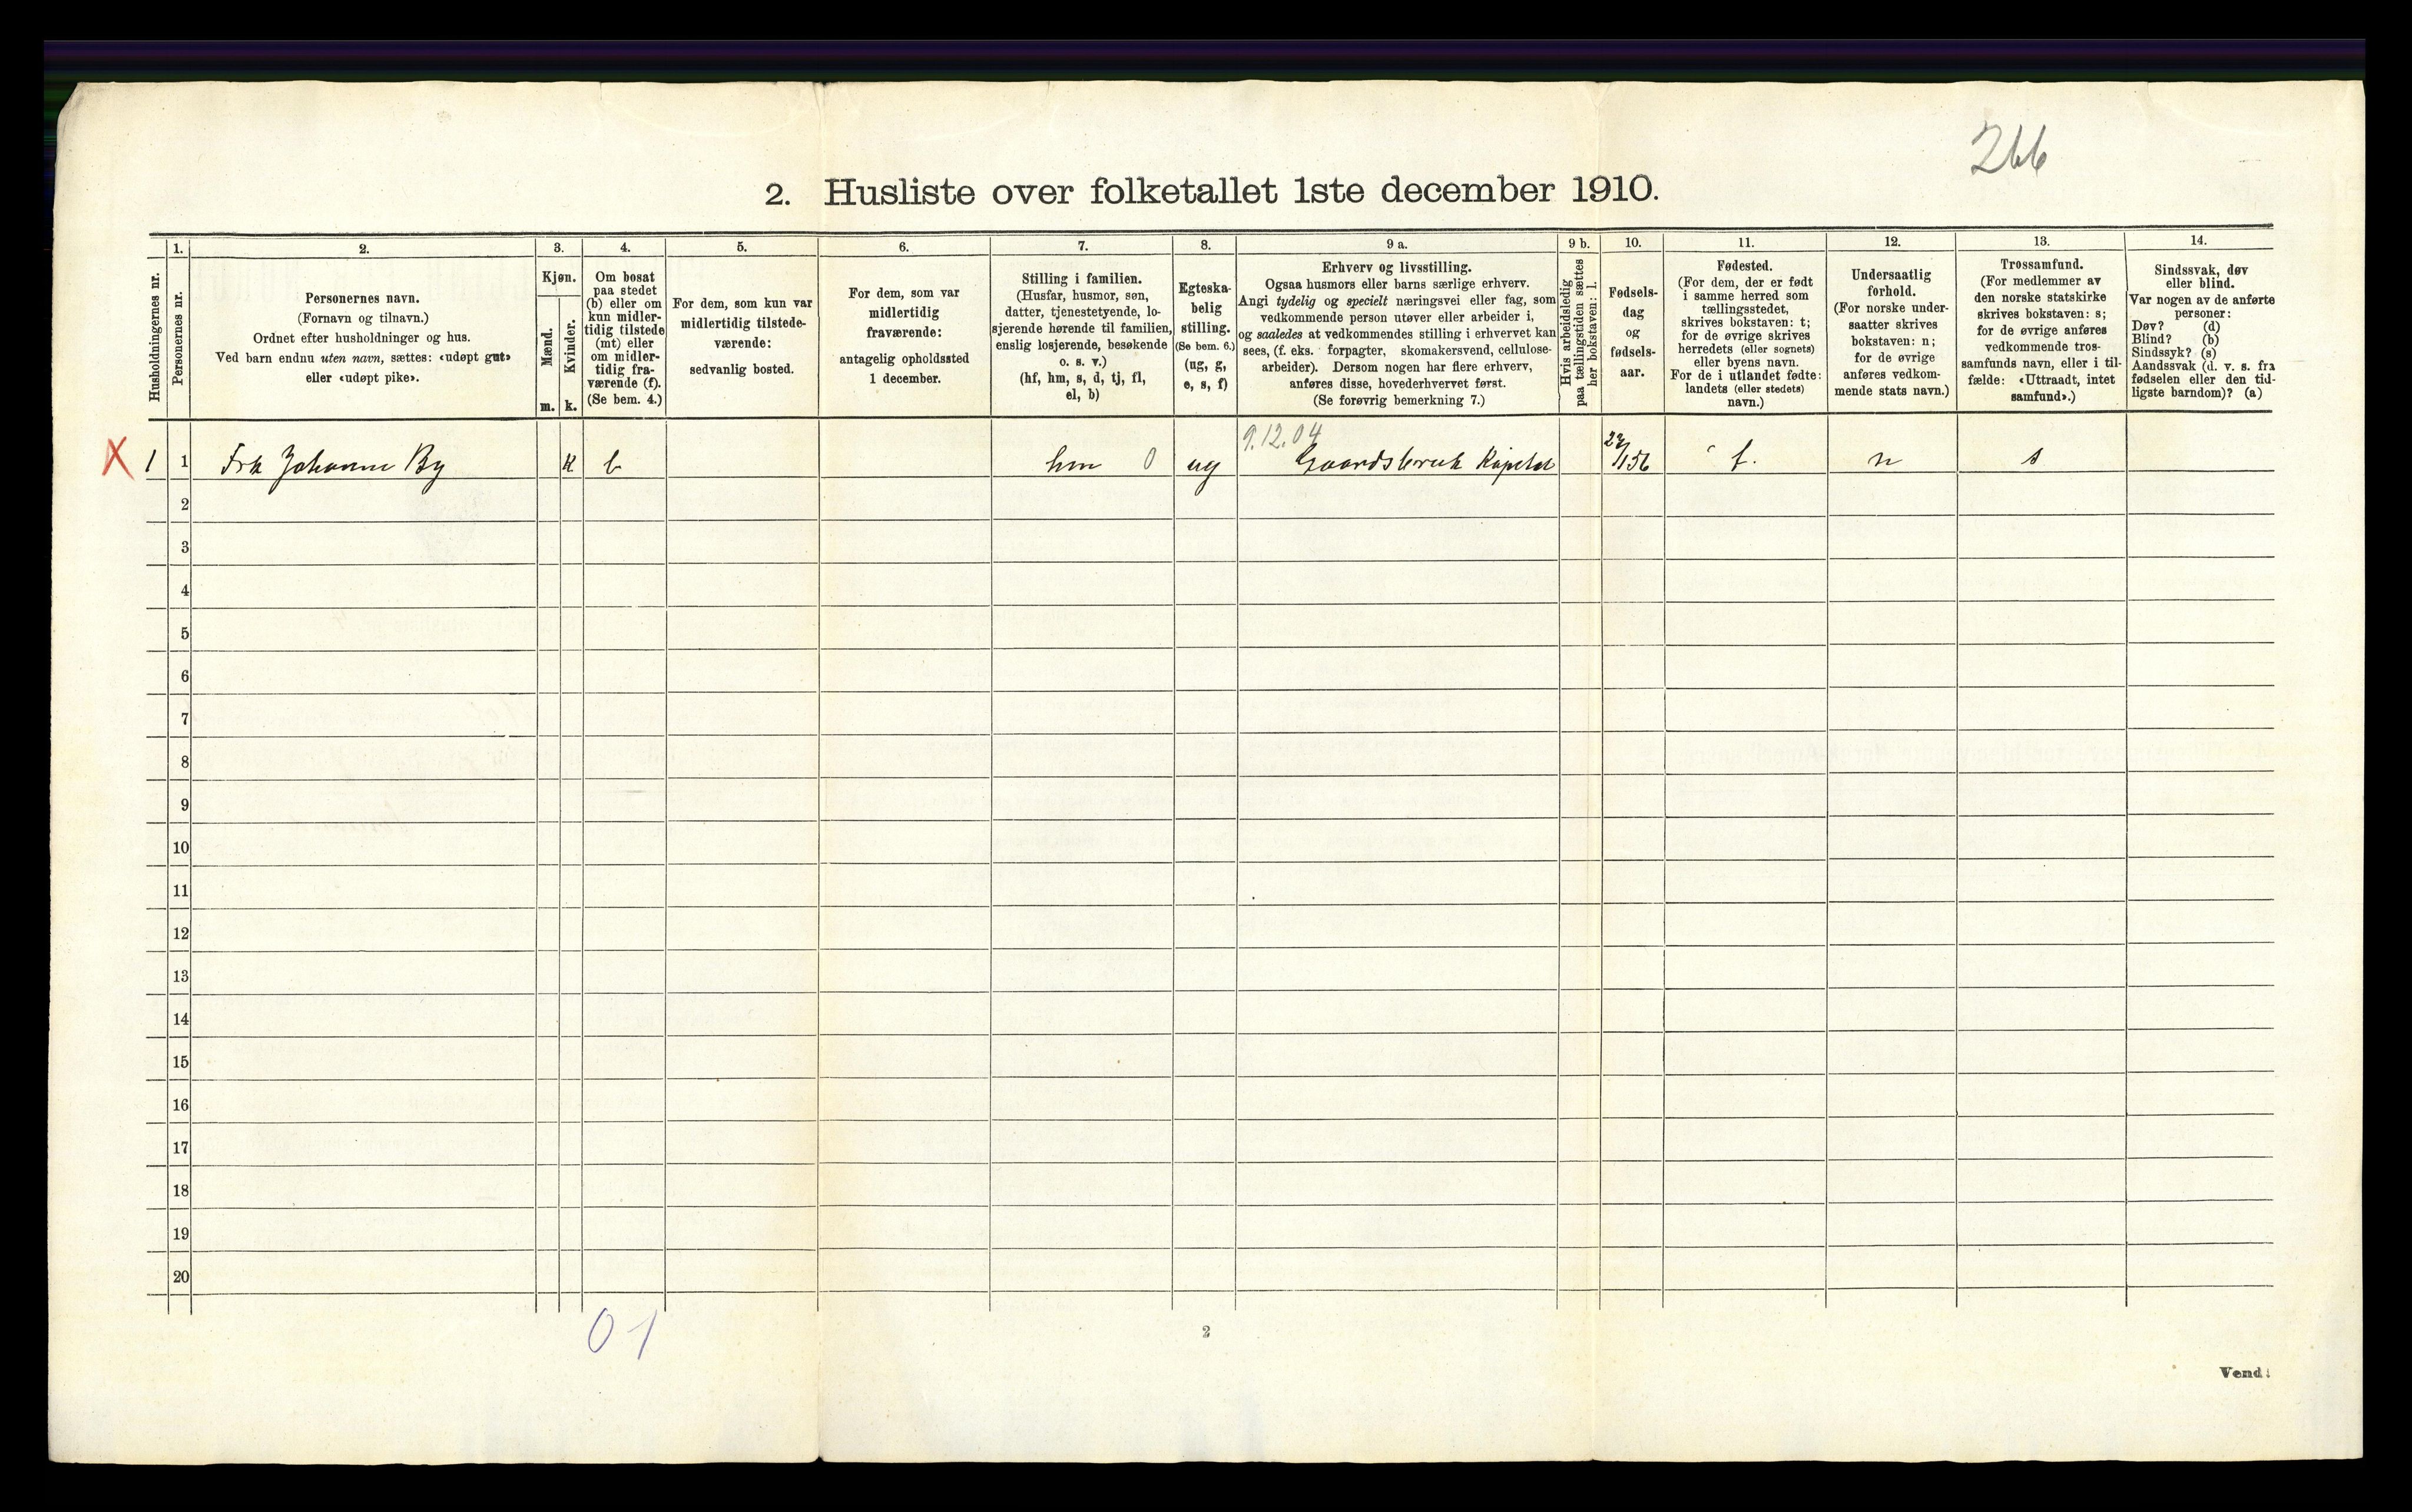 266
2. Husliste over folketallet 1ste december 1910.
Husholdningernes nr.
1.
Personernes nr.
2.
Personernes navn.
(Fornavn og tilnavn.)
Ordnet efter husholdninger og hus.
Ved barn endnu uten navn, sættes: «udøpt gut»
eller «udøpt pike».
3.
Kjøn.
Mænd.
Kvinder.
m. k.
4.
Om bosat
paa stedet
(b) eller om
kun midler-
tidig tilstede
(mt) eller
om midler-
tidig fra-
værende (f).
(Se bem. 4.)
5.
For dem, som kun var
midlertidig tilstede-
værende:
sedvanlig bosted.
6.
For dem, som var
midlertidig
fraværende:
antagelig opholdssted
1 december.
7.
Stilling i familien.
(Husfar, husmor, søn,
datter, tjenestetyende, lo-
sjerende hørende til familien,
enslig losjerende, besøkende
o. s. v.)
(hf, hm, s, d, tj, fl,
el, b)
8.
Egteska-
belig
stilling.
(Se bem. 6.)
(ug, g,
e, s, f)
9 a.
Erhverv og livsstilling.
Ogsaa husmors eller barns særlige erhverv.
Angi tydelig og specielt næringsvei eller fag, som
vedkommende person utøver eller arbeider i,
og saaledes at vedkommendes stilling i erhvervet kan
sees, (f. eks. forpagter, skomakersvend, cellulose-
arbeider). Dersom nogen har flere erhverv,
anføres disse, hovederhvervet først.
(Se forøvrig bemerkning 7.)
9 b.
Hvis arbeidsledig
paa tællingstiden sættes
her bokstaven: l.
10.
Fødsels-
dag
og
fødsels-
aar.
11.
Fødested.
(For dem, der er født
i samme herred som
tællingsstedet,
skrives bokstaven: t;
for de øvrige skrives
herredets (eller sognets)
eller byens navn.
For de i utlandet fødte:
landets (eller stedets)
navn.)
12.
Undersaatlig
forhold.
(For norske under-
saatter skrives
bokstaven: n;
for de øvrige
anføres vedkom-
mende stats navn.)
13.
Trossamfund.
(For medlemmer av
den norske statskirke
skrives bokstaven: s;
for de øvrige anføres
vedkommende tros-
samfunds navn, eller i til-
fælde: «Uttraadt, intet
samfund».)
14.
Sindssvak, døv
eller blind.
Var nogen av de anførte
personer:
Døv? (d)
Blind? (b)
Sindssyk? (s)
Aandssvak (d. v. s. fra
fødselen eller den tid-
ligste barndom)? (a)
9.12.04
X 1 1 Frk Johanne By K b hm 0 ug Gaardsbruk Kapital t. n s
2
3
4
5
6
7
8
9
10
11
12
13
14
15
16
17
18
19
20
0 1
2
Vend!